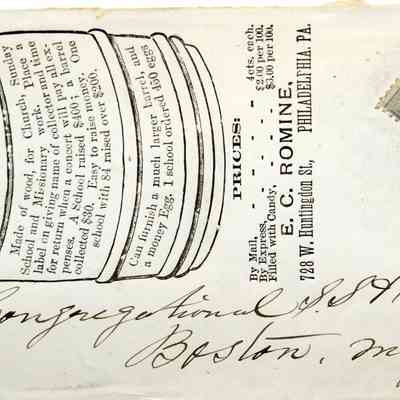 Made of wood, for Church, Sunday
School and Missionary work. Place a
label on giving name of collector and time
for return when a concert will pay all ex-
penses. A School raised $400; a barrel
collected $30. Easy to raise money. One
school with 84 raised over $200.
Can furnish a much larger barrel, and
a money Egg. 1 school ordered 450 eggs
PRICES:
By Mail, - - - - 4cts. each.
By Express, - - - $2.00 per 100.
Filled with Candy, - - $3.00 per 100.
E. C. ROMINE,
728 W. Huntingdon St., PHILADELPHIA, PA.
Congregational S.S.
Boston,